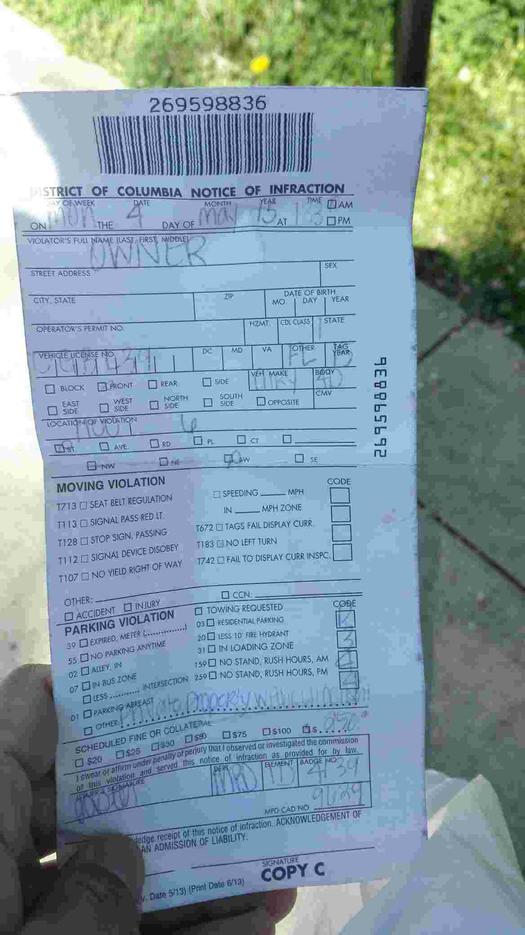 269598836
DISTRICT OF COLUMBIA NOTICE OF INFRACTION
DAY OF WEEK DATE MONTH YEAR TIME AM
ON Mon THE 4 DAY OF May 15 AT PM
VIOLATOR'S FULL NAME (LAST, FIRST, MIDDLE)
OWNER
STREET ADDRESS SEX
CITY, STATE ZIP DATE OF BIRTH
MO. DAY YEAR
OPERATOR'S PERMIT NO. HZMT. CDL CLASS STATE
VEHICLE LICENSE NO. DC MD VA OTHER TAG YEAR
FL
BLOCK FRONT REAR SIDE VEH. MAKE BODY
4D
EAST SIDE WEST SIDE NORTH SIDE SOUTH SIDE OPPOSITE CMV
LOCATION OF VIOLATION
ST. AVE. RD PL CT
NW NE SW SE
269598836
MOVING VIOLATION CODE
T713 SEAT BELT REGULATION SPEEDING MPH
T113 SIGNAL PASS RED LT. IN MPH ZONE
T128 STOP SIGN, PASSING T672 TAGS FAIL DISPLAY CURR.
T112 SIGNAL DEVICE DISOBEY T183 NO LEFT TURN
T107 NO YIELD RIGHT OF WAY T742 FAIL TO DISPLAY CURR INSPC.
OTHER: CCN:
ACCIDENT INJURY
PARKING VIOLATION TOWING REQUESTED CODE
39 EXPIRED, METER 03 RESIDENTIAL PARKING
55 NO PARKING ANYTIME 20 LESS 10' FIRE HYDRANT
02 ALLEY, IN 31 IN LOADING ZONE
07 IN BUS ZONE 159 NO STAND, RUSH HOURS, AM
LESS INTERSECTION 259 NO STAND, RUSH HOURS, PM
01 PARKING ABREAST
OTHER Private Property
SCHEDULED FINE OR COLLATERAL
$20 $25 $30 $50 $75 $100 $
I swear or affirm under penalty of perjury that I observed or investigated the commission
of this violation and served this notice of infraction as provided for by law.
SIGNATURE ELEMENT BADGE NO.
MPD CAD NO.
receipt of this notice of infraction. ACKNOWLEDGEMENT OF
AN ADMISSION OF LIABILITY.
SIGNATURE
COPY C
v. Date 5/13) (Print Date 6/13)